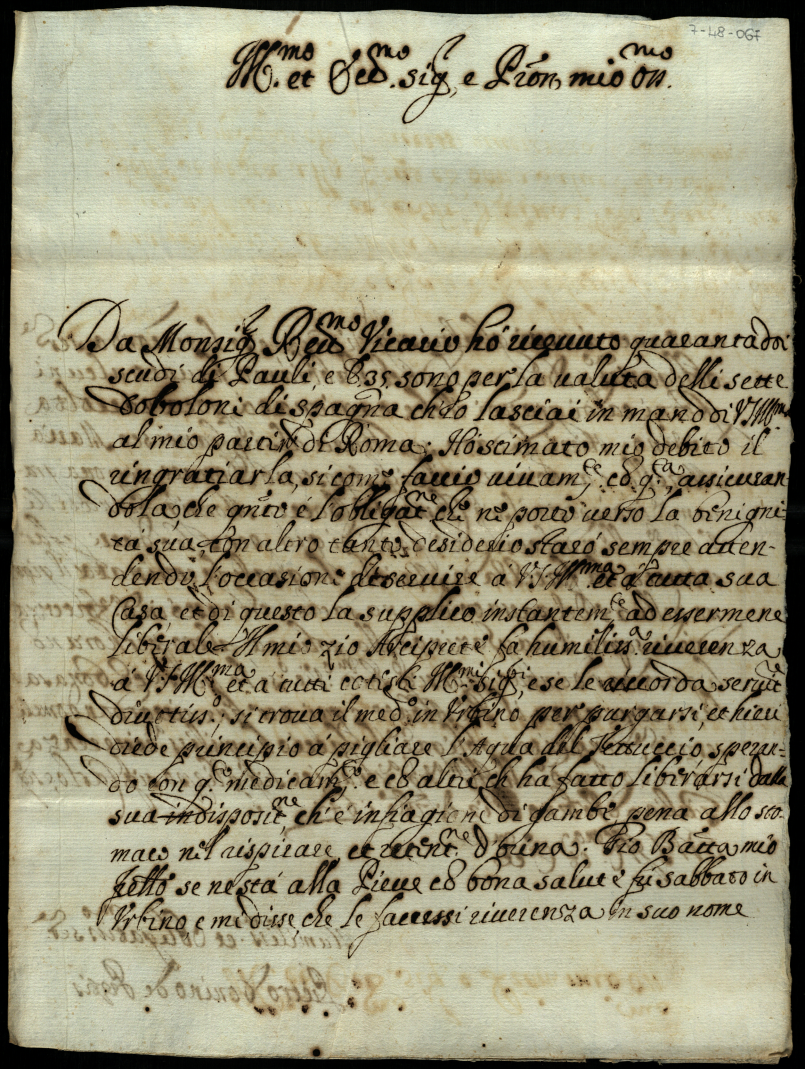 7-48-067
Ill.mo et Ecc.mo sig.r e P̃ron mio Oss.mo
Da Monsig.r Reu.mo Vicario hò riceuuto quarantadoi
scudi di Pauli, e b 35 sono per la ualuta delli sette
doboloni di spagna ch'io lasciai in mano di V.S.Ill.ma
al mio partire di Roma; Hò stimato mio debito il
ringratiarla, si come faccio uiuam.te cõ q.ta, assicuran
dola, che qñto è l'obligat.ne che ne porto uerso la benigni
tà sua con altro tanto desiderio starò sempre atten-
dendo l'occasione di seruire à V.S.Ill.ma et à tutta sua
Casa, et di questo la supplico instantem.te ad essermene
liberale. Il mio zio Arciprete fa humiliss.a riuerenza
à V.S.Ill.ma et à tutti cotesti Ill.mi sig.ri, e se le ricorda seru.re
diuotiss.o; si troua il med.o in Vrbino per purgarsi, et hieri
diede principio à pigliare l'Aqua del Tettuccio, speran-
do con q.o medicam.o e cõ altri ch' ha fatto liberarsi dalla
sua indisposit.ne ch' è infiagione di gambe, pena allo sto
maco nel respirare, et retent.ne d'urina. Gio Batta mio
frello se ne stà alla Pieue cõ bona salute fù sabbato in
Vrbino e mi disse, che le facessi riuerenza in suo nome